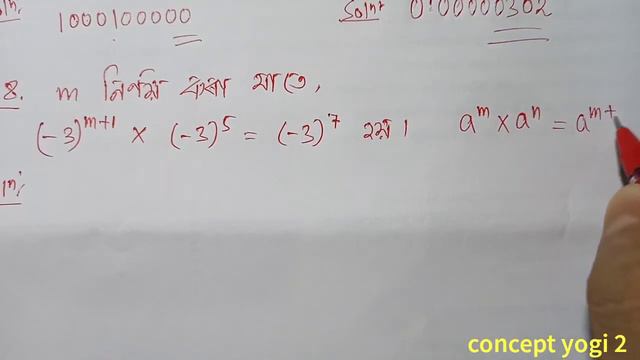 Solⁿ.
1000100000
Solⁿ
0.00000302
8. m নিৰ্ণয় কৰা যাতে,
(-3)^{m+1} × (-3)^5 = (-3)^7 হয়।
a^m × a^n = a^{m+
concept yogi 2